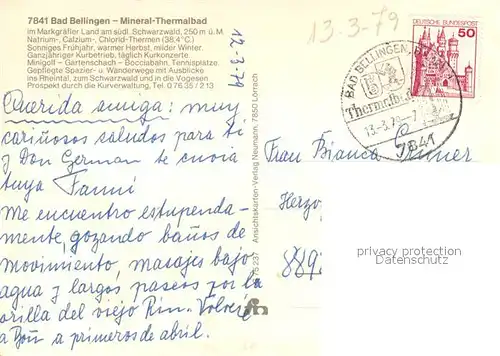 7841 Bad Bellingen – Mineral-Thermalbad
im Markgräfler Land am südl. Schwarzwald, 250 m ü. M.
Natrium-, Calzium-, Chlorid-Thermen (38,4°C)
Sonniges Frühjahr, warmer Herbst, milder Winter.
Ganzjähriger Kurbetrieb, täglich Kurkonzerte
Minigolf – Gartenschach – Bocciabahn, Tennisplätze.
Gepflegte Spazier- u. Wanderwege mit Ausblicke
ins Rheintal, zum Schwarzwald und in die Vogesen
Prospekte durch die Kurverwaltung, Tel. 0 76 35 / 2 13
12-3-79
13-3-79
DEUTSCHE BUNDESPOST
50
BAD BELLINGEN
Thermalbad
13-3.79-7
7841
Querida amiga: muy
cariñosos saludos para ti
y Don German te envia
tuya Fanni
Me encuentro estupenda-
mente, gozando baños de
movimiento, masajes bajo
agua y largos paseos por la
orilla del viejo Rin. Volveré
a Bon a primeros de abril.
Ansichtskarten-Verlag Neumann, 7850 Lörrach
15 237
Frau Bianca
Herzo
889
privacy protection
Datenschutz